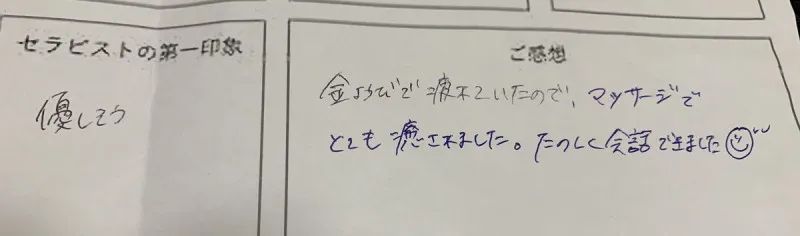 セラピストの第一印象
優しそう
ご感想
金ようびで疲れていたので、マッサージで
とても癒されました。たのしく会話できました